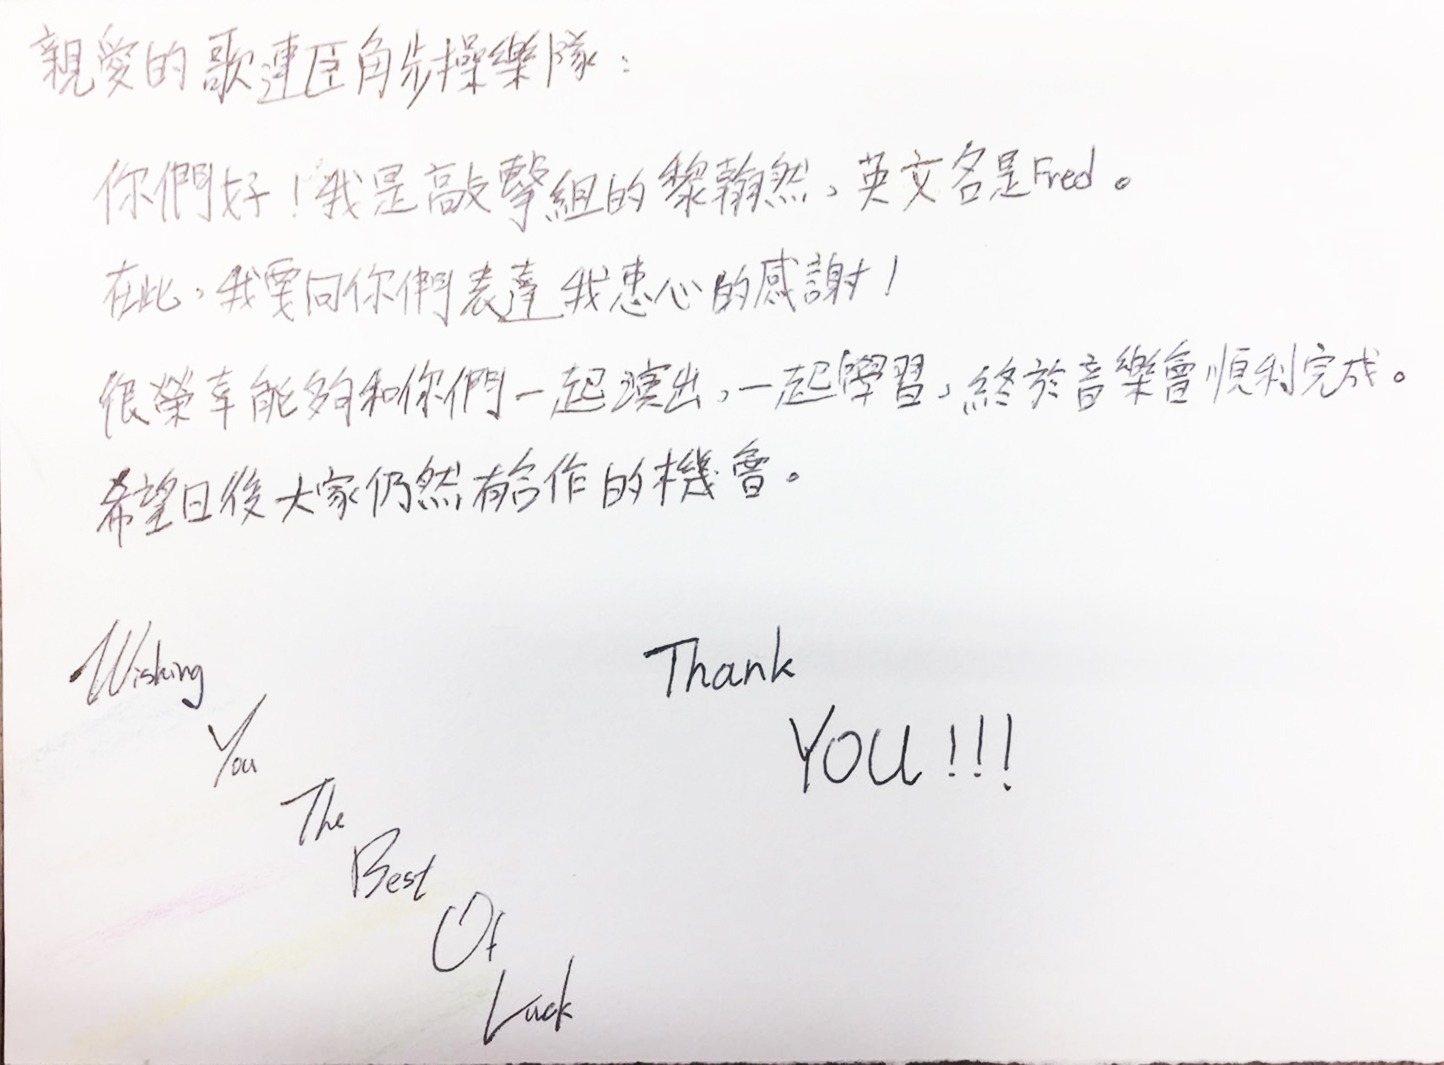 親愛的歌連臣角步操樂隊：
你們好！我是敲擊組的黎翰然，英文名是Fred。
在此，我要向你們表達我忠心的感謝！
很榮幸能夠和你們一起演出，一起學習，終於音樂會順利完成。
希望日後大家仍然有合作的機會。
Wishing
You
The
Best
Of
Luck
Thank
YOU!!!